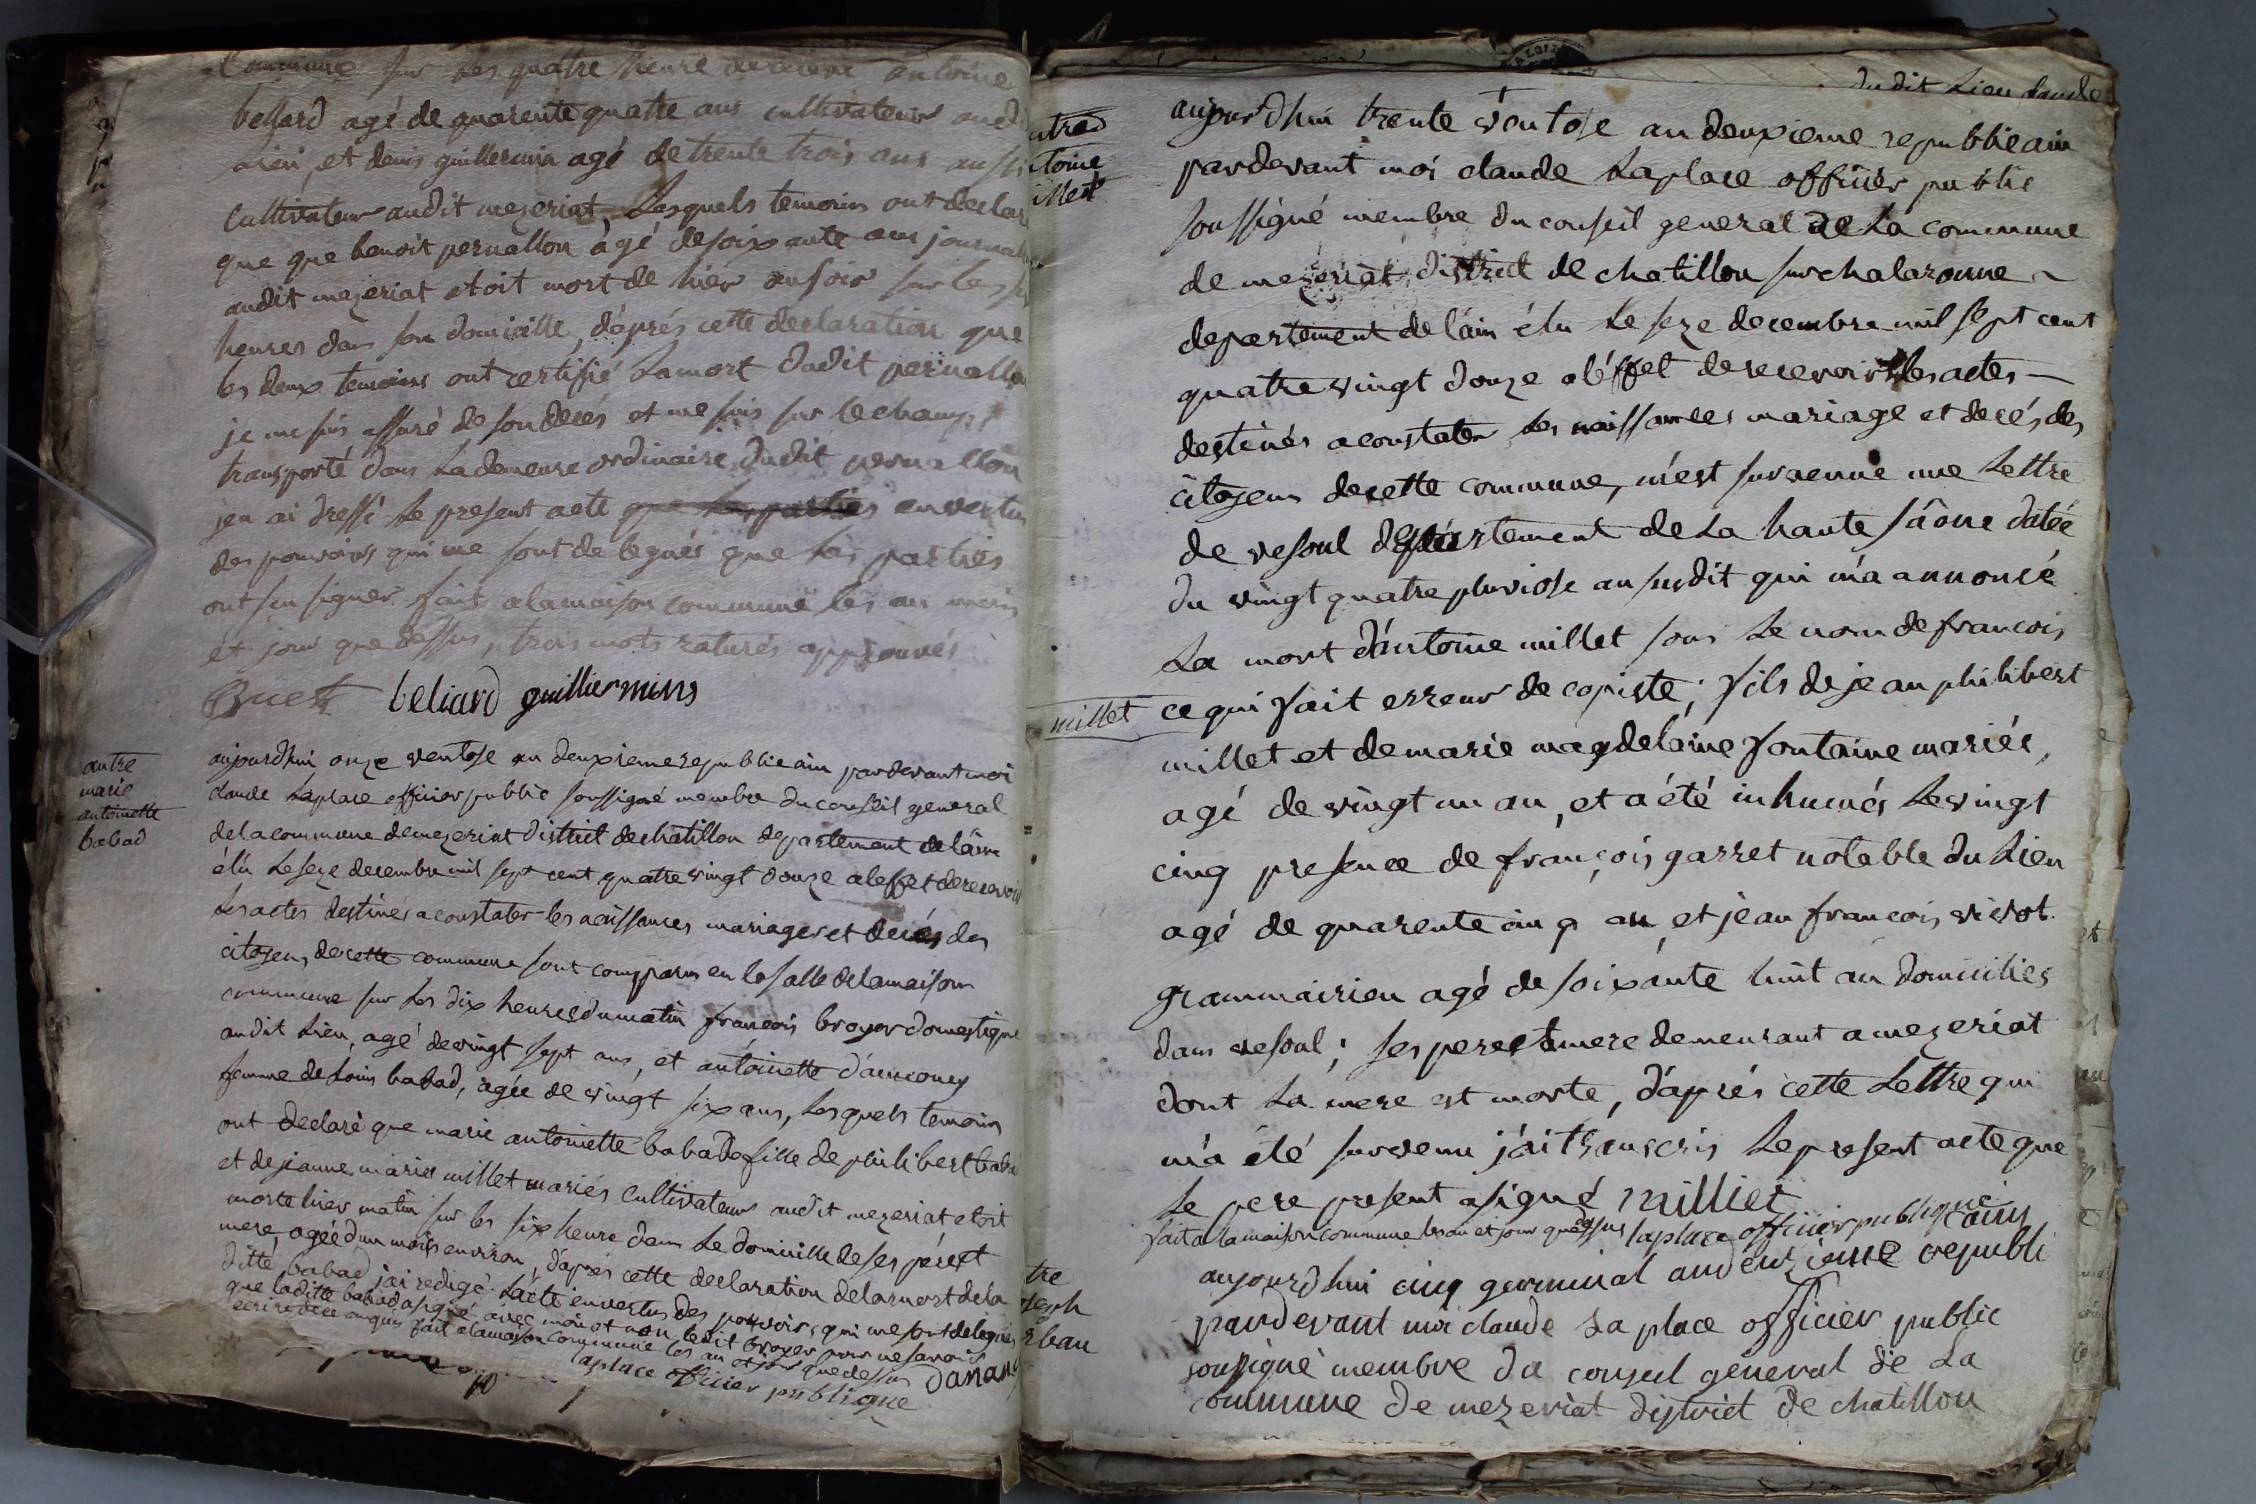 commune sur les quatre heure de relevé antoine
bellard agé de quarente quatre ans cultivateur audit
et denis guillermin agé de trente trois ans aussi
cultivateur audit mezeriat Lesquels temoins ont declar
que que benoit pernallon agé de soixante ans journal
audit mezeriat etoit mort de hier au soir sur les
heures dans son domicille, d'aprés cette declaration que
les deux temoins ont certifié La mort dudit pernallon
je me suis assuré de son decés et me suis sur le champ
transporté dans La demeure ordinaire dudit pernallon
jen ai dressé Le present acte que les parties en vertu
des pouvoirs qui me sont delegués que Les parties
ont su signer fait a la maison commune les an mois
et jour que dessus, trois mots raturés approuvés
Buet beliard guilliermins
autre
marie
antoinette
babad
aujourdhui onze ventose an deuxieme republicain pardevant moi
claude Laplace officier public soussigné membre du conseil general
de la commune de mezeriat district de chatillon departement de l'ain
élu Le seze decembre mil sept cent quatre vingt douze a leffet de recevoir
Les actes destinés a constater les naissances mariages et decés des
citoyens de cette commune sont comparus en la salle de la maison
commune sur Les dix heures du matin francois broyer domestique
audit Lieu, agé de vingt sept ans, et antoinette d'anancy
femme de Louis babad, agée de vingt six ans, Lesquels temoins
ont declaré que marie antoinette babad fille de philibert babad
et de jeanne marie millet mariés cultivateurs audit mezeriat etoit
morte hier matin sur les six heure dans Le domicille de ses pére et
mere, agée d'un mois environ, d'aprés cette declaration de la mort de la
ditte babad j'ai redigé L'acte en vertu des pouvoirs qui me sont delegués
que laditte babad a signé avec moi et non ledit broyer pour ne savoir
ecrire de ce enquis fait a la maison commune les an et jour que dessus
danan
laplace officier publique
dudit Lieu claude
utre
toine
illet
aujourdhui trente ventose an deuxieme republicain
pardevant moi claude Laplace officier public
soussigné membre du conseil general de La commune
de mezeriat district de chatillon sur chalaronne
departement de l'ain élu Le seze decembre mil sept cent
quatre vingt douze a l'éffet de recevoir les actes
destinés a constater Les naissances mariage et decés des
citoyens de cette commune, m'est survenue une Lettre
de vesoul departement de La haute sâone datée
du vingt quatre pluviose an susdit qui m'a annoncé
La mort d'antoine millet sous Le nom de francois
millet
ce qui fait erreur de copiste; fils de jean philibert
millet et de marie magdelaine fontaine mariés,
agé de vingt un an, et a été inhumés Le vingt
cinq presence de françois garret notable du Lieu
agé de quarente cinq an, et jean francois vivot
grammairien agé de soixante huit an domiciliés
dans vesoul; ses pere et mere demeurant a mezeriat
dont La mere est morte, d'aprés cette Lettre qui
m'a été survenu j'ai transcris Le present acte que
Le pere present a signé milliet
fait a la maison commune les an et jour que dessus laplace officier publique
tre
oseph
rban
aujourdhui cinq germinal an deuxieme republi
cain
pardevant moi claude La place officier public
soussigné membre du conseil general de La
commune de mezeriat district de chatillon